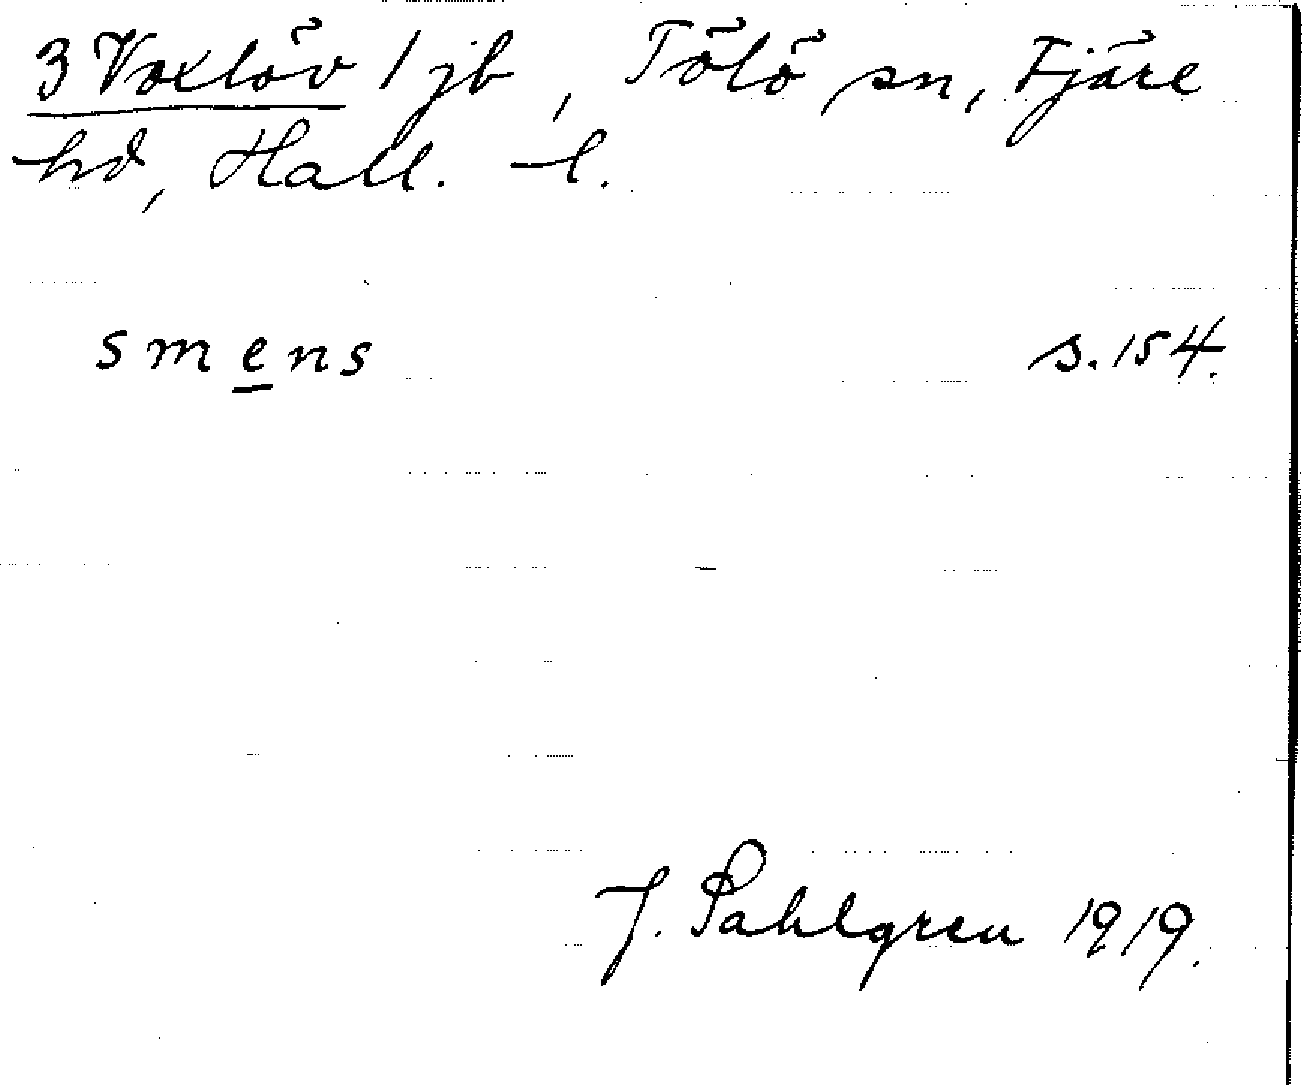 3 Voxlöv 1 jb, Tölö sn, Fjäre
hd, Hall. l.
smens s. 154.
J. Sahlgren 1919.